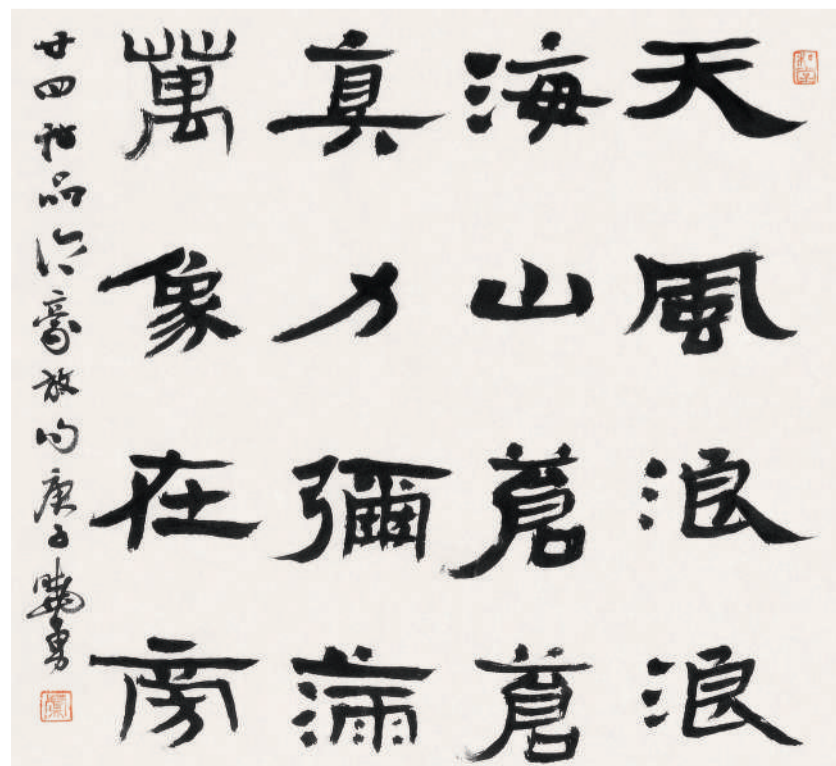 天風浪浪
海山蒼蒼
真力彌滿
萬像在旁
廿四詩品之豪放句庚子曉勇